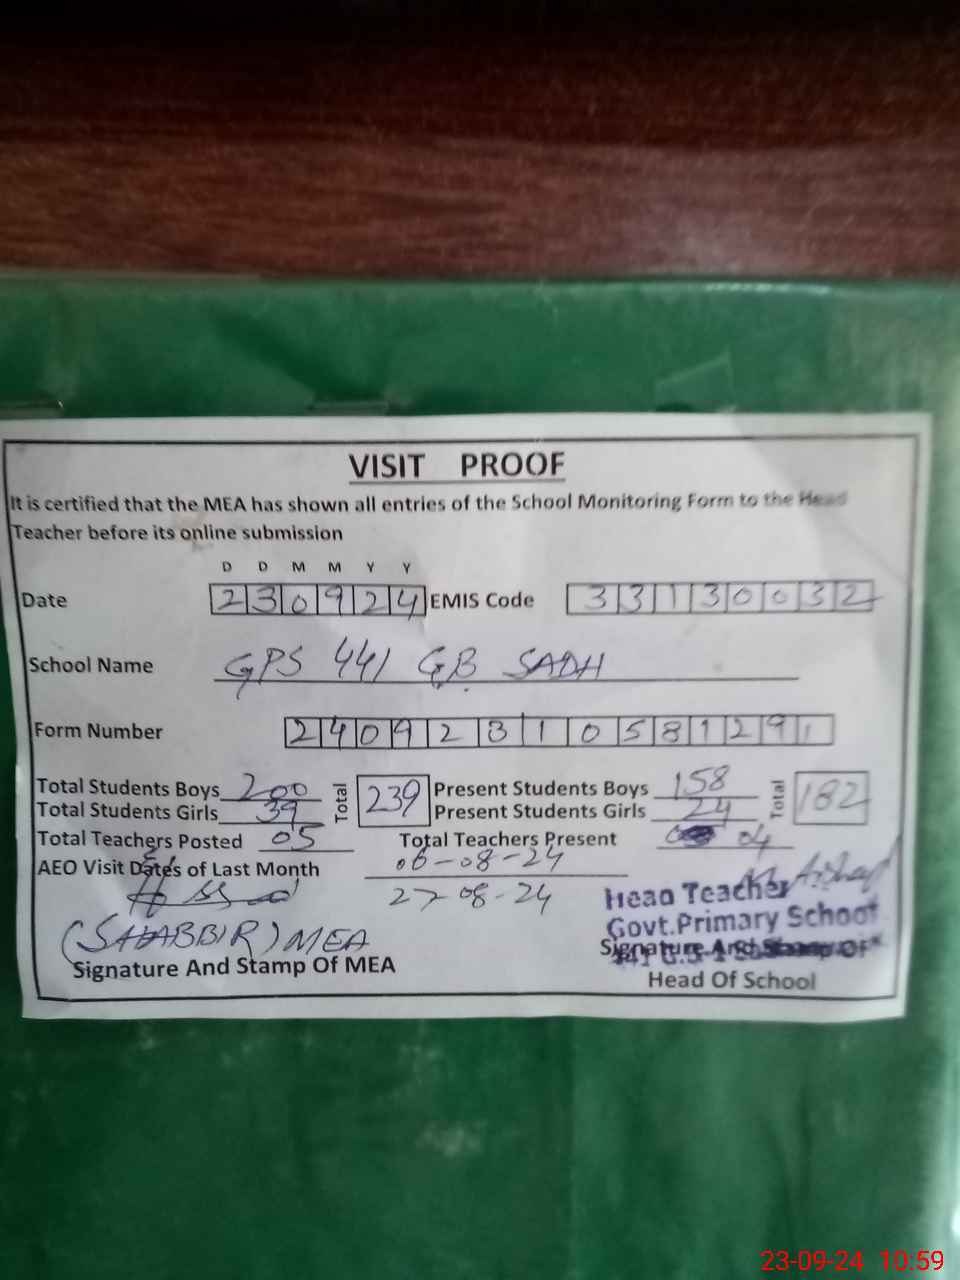 VISIT PROOF
It is certified that the MEA has shown all entries of the School Monitoring Form to the Head
Teacher before its online submission
D D M M Y Y
Date 230924 EMIS Code 33130032
School Name GPS 441 GB SADH
Form Number 24092310581291
Total Students Boys 200 Total 239 Present Students Boys 158 Total 182
Total Students Girls 39 Present Students Girls 24
Total Teachers Posted 05 Total Teachers Present 04
AEO Visit Dates of Last Month 06-08-24
27-08-24
Head Teacher
Govt.Primary School
(SHABBIR) MEA
Signature And Stamp Of MEA Signature And Stamp Of
Head Of School
23-09-24 10:59